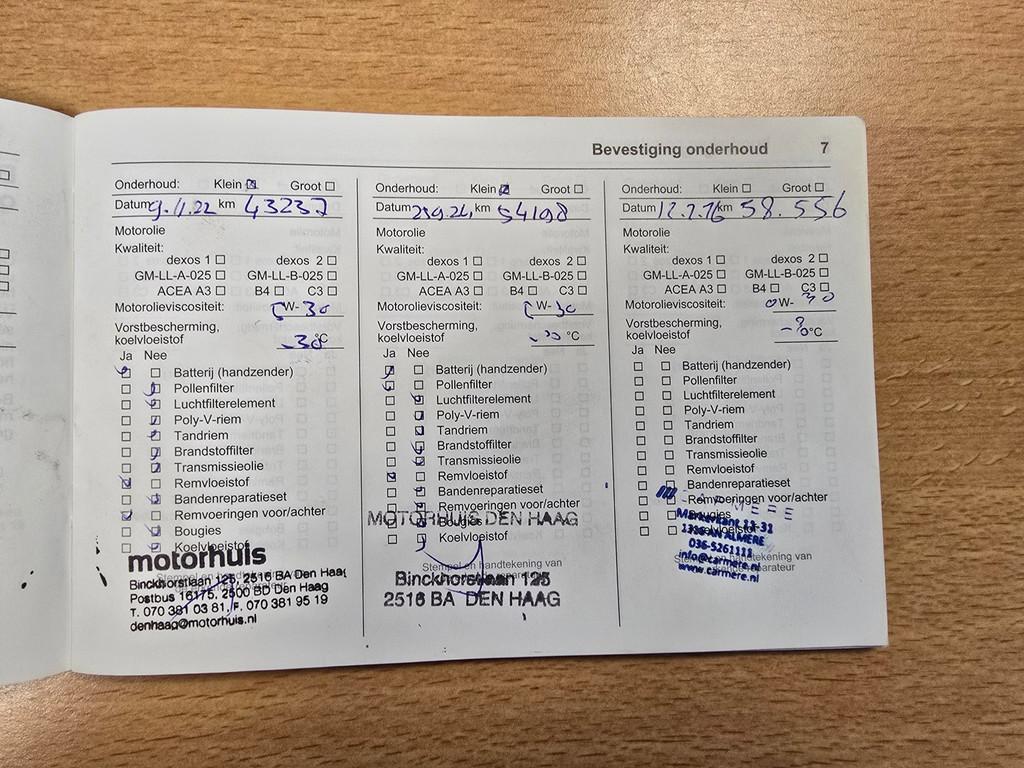 Bevestiging onderhoud 7
Onderhoud: Klein Groot
Datum km 43237
Motorolie
Kwaliteit:
dexos 1 dexos 2
GM-LL-A-025 GM-LL-B-025
ACEA A3 B4 C3
Motorolieviscositeit: W- 30
Vorstbescherming,
koelvloeistof -38 °C
Ja Nee
Batterij (handzender)
Pollenfilter
Luchtfilterelement
Poly-V-riem
Tandriem
Brandstoffilter
Transmissieolie
Remvloeistof
Bandenreparatieset
Remvoeringen voor/achter
Bougies
Koelvloeistof
motorhuis
Binckhorstlaan 125, 2516 BA Den Haag
Postbus 16175, 2500 BD Den Haag
T. 070 381 03 81, F. 070 381 95 19
denhaag@motorhuis.nl
Onderhoud: Klein Groot
Datum km 54198
Motorolie
Kwaliteit:
dexos 1 dexos 2
GM-LL-A-025 GM-LL-B-025
ACEA A3 B4 C3
Motorolieviscositeit: W- 30
Vorstbescherming,
koelvloeistof °C
Ja Nee
Batterij (handzender)
Pollenfilter
Luchtfilterelement
Poly-V-riem
Tandriem
Brandstoffilter
Transmissieolie
Remvloeistof
Bandenreparatieset
Remvoeringen voor/achter
MOTORHUIS DEN HAAG
Bougies
Koelvloeistof
Stempel en handtekening van
Binckhorstlaan 125
2516 BA DEN HAAG
Onderhoud: Klein Groot
Datum km 58.556
Motorolie
Kwaliteit:
dexos 1 dexos 2
GM-LL-A-025 GM-LL-B-025
ACEA A3 B4 C3
Motorolieviscositeit: 0W- 30
Vorstbescherming,
koelvloeistof °C
Ja Nee
Batterij (handzender)
Pollenfilter
Luchtfilterelement
Poly-V-riem
Tandriem
Brandstoffilter
Transmissieolie
Remvloeistof
Bandenreparatieset
Remvoeringen voor/achter
Bougies
Markerkant 13-31
Koelvloeistof
ALMERE
036-5261111
info@carmere.nl
www.carmere.nl